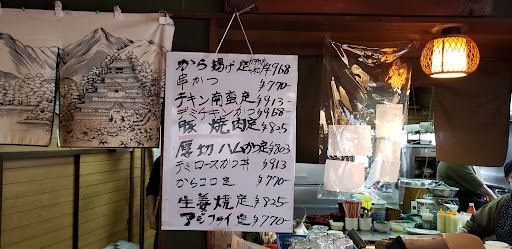 から揚げ定 ¥968
串かつ ¥770-
チキン南蛮定 ¥913
デミチキンかつ ¥968
豚焼肉定 ¥825
厚切ハムかつ定 ¥803
デミロースかつ丼 ¥913
からココ定 ¥770-
生姜焼定 ¥825-
アジフライ定 ¥770-